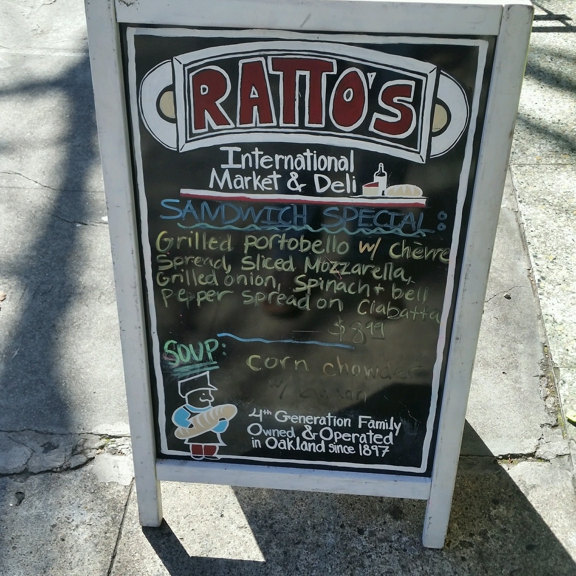 RATTO'S
International
Market & Deli
SANDWICH SPECIAL:
Grilled portobello w/ chèvre
Spread, Sliced Mozzarella,
Grilled onion, Spinach + bell
pepper spread on Ciabatta
SOUP:
corn chowder
w/
4th Generation Family
Owned & Operated
in Oakland since 1897